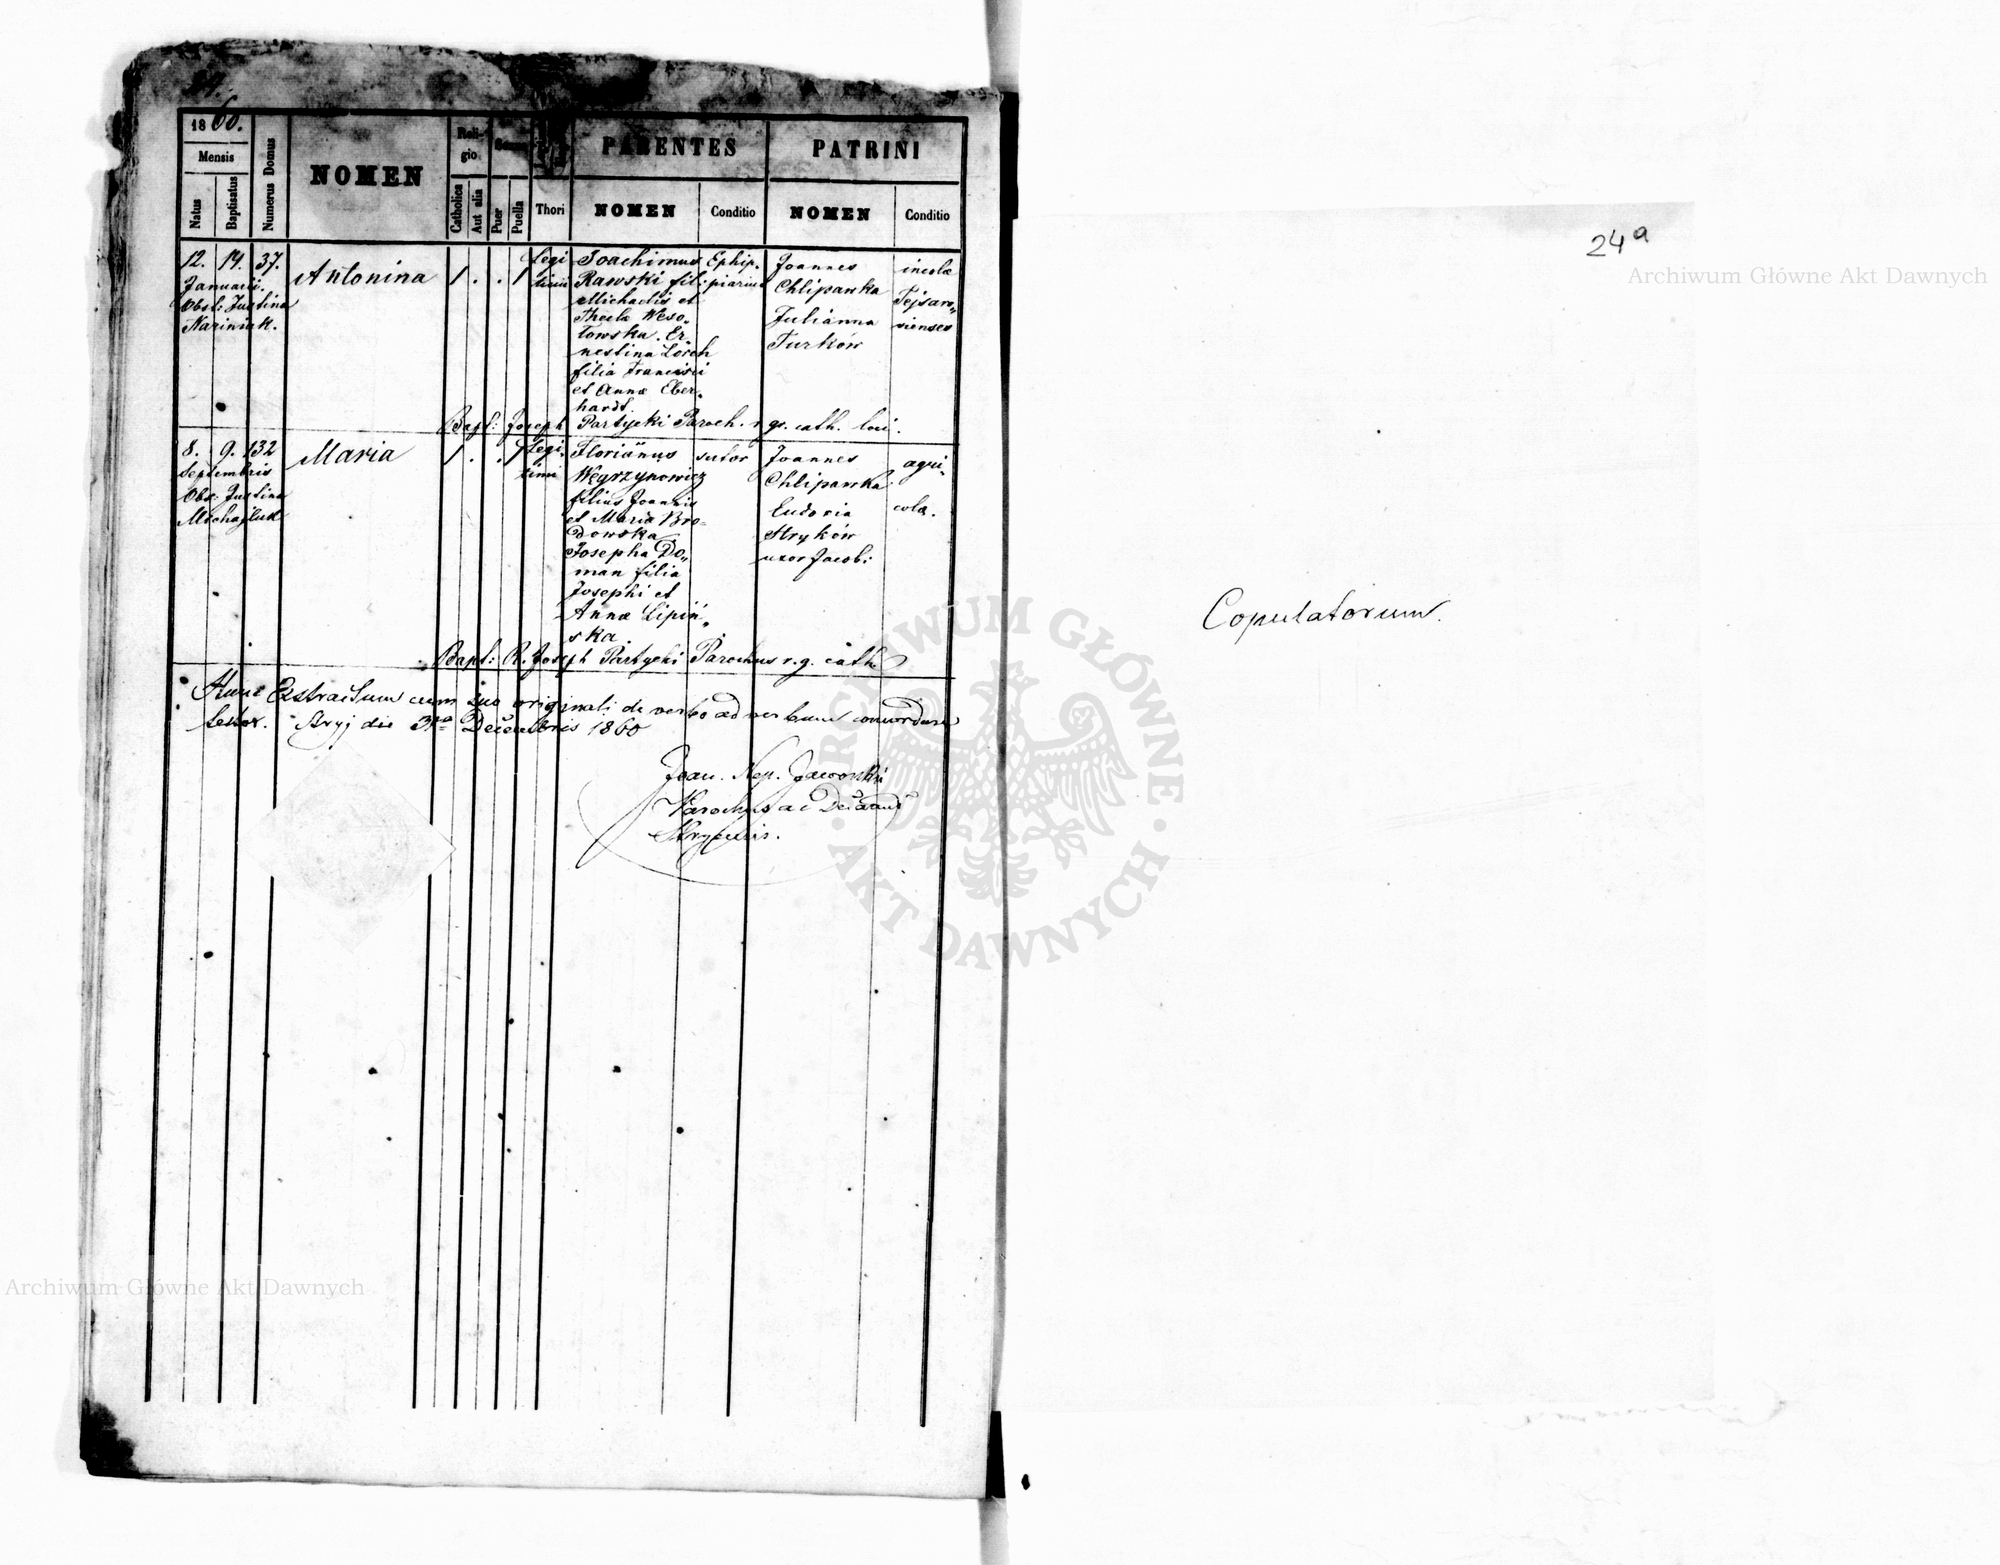 24.
1860.
Mensis
Natus
Baptisatus
Numerus Domus
NOMEN
Religio
Catholica
Aut alia
Puer
Puella
Thori
PARENTES
NOMEN
Conditio
PATRINI
NOMEN
Conditio
12. 14. 37.
Januarii.
Obst: Justina
Antonina
1 . . 1
Legi
timi
Joachimus
Rawski fil:
Michaelis et
Thecla Weso„
łowska. Er„
nestina Lorch
filia Francisci
et Annæ Eber„
hardt.
Ephip„
piarius
Joannes
Chlipawka
Julianna
Turków
incolæ
Bapt: Joseph Partycki Paroch. r. gr. cath. loci.
8. 9. 132
Septembris
Obs: Justina
Michajluk
Maria
1 . . 1
Legi„
timi
Florianus
Węgrzynowicz
filius Joannis
et Maria Bro„
dowska
Josepha Do„
man filia
Josephi et
Annæ Lipiń„
ska.
sutor
Joannes
Chlipawka
Eudoxia
Stryków
uxor Jacobi
agri„
colæ.
Bapt: R. Joseph Partycki Parochus r. g. cath.
Hunc Extractum cum suo originali de verbo ad verbum concordare
testor. Stryj die 31ma Decembris 1860
Joan. Nep. Jaworski
Parochus ac Decanus
Stryensis.
24a
Archiwum Główne Akt Dawnych
Copulatorum.
ARCHIWUM GŁÓWNE · AKT DAWNYCH ·
Archiwum Główne Akt Dawnych